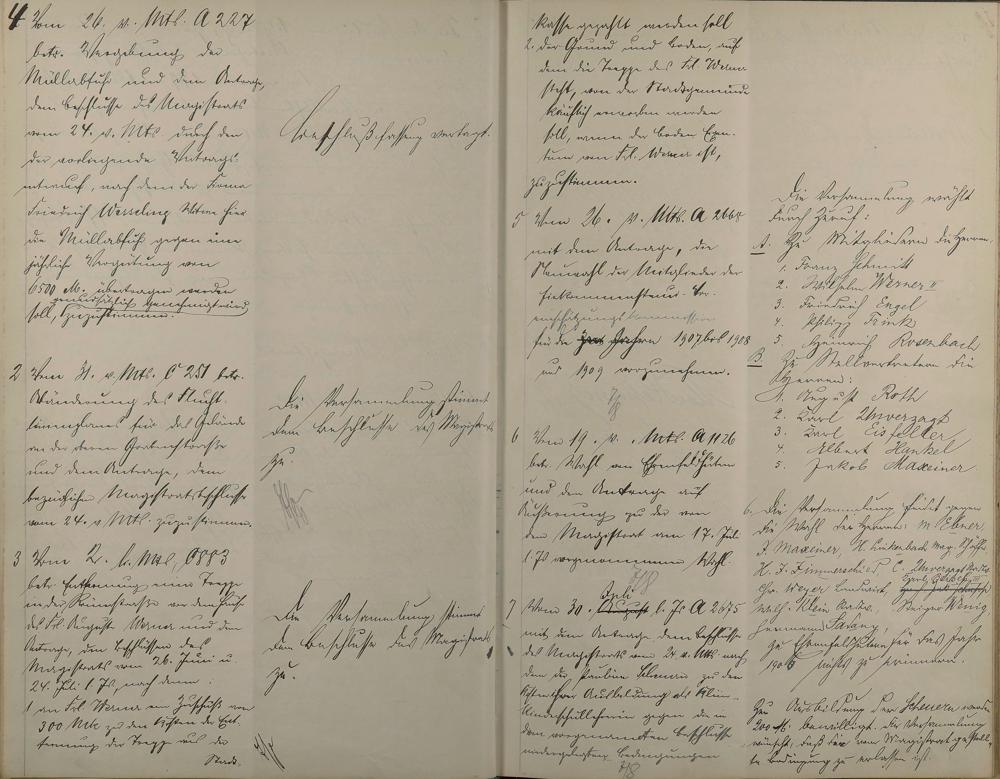 4 Vom 26. v. Mts. A 227
betr. Vergebung der
Müllabfuhr und dem Antrage,
dem Beschlusse des Magistrats
vom 24. v. Mts. durch den
der vorliegende Vertrags-
entwurf, nach dem der Firma
Friedrich Wesseling Witwe hier
die Müllabfuhr gegen eine
jährliche Vergütung von
6500 M. übertragen werden
grundsätzlich
soll, zuzustimmen.
Beschlußfassung vertagt.
2 Vom 31. v. Mts. C 251 betr.
Abänderung des Flucht-
linienplanes für das Gelände
an der oberen
und dem Antrage, dem
bezüglichen Magistratsbeschlusse
vom 24. v. Mts. zuzustimmen.
Die Versammlung stimmt
dem Beschlusse des Magistrats
zu.
3 Vom 2. l. Mts.
betr. Entfernung einer Treppe
in der
des Frl. Auguste Werner und dem
Antrage, den Beschlüssen des
Magistrats vom 26. Juni u.
24. Juli l. Js, nach denen:
1 an Frl. Werner ein Zuschuß von
300 Mk zu den Kosten der Ent-
fernung der Treppe aus der
Stadt-
Die Versammlung stimmt
den Beschlüssen des Magistrats
zu.
kasse gezahlt werden soll
2. der Grund und Boden, auf
dem die Treppe des Frl. Werner
steht, von der Stadtgemeinde
käuflich erworben werden
soll, wenn der Boden Eigen-
tum von Frl. Werner ist,
zuzustimmen.
5 Vom 26. v. Mts. A
mit dem Antrage, die
Neuwahl der Mitglieder der
Einkommensteuer-Vor-
einschätzungskommission
für die Jahre 1907 bis 1908
und 1909 vorzunehmen.
Die Versammlung wählt
durch Zuruf:
A. Zu Mitgliedern die Herren:
1. Franz Schmitt
2. Wilhelm Werner II
3. Friedrich Engel
4. Philipp Frink
5. Heinrich Rosenbach
B. Zu Stellvertretern die
Herren:
1. August Roth
2. Karl Unverzagt
3. Karl Eisfelder
4. Albert Henkel
5. Jakob Maxeiner
6 Vom 19. v. Mts. A 1126
betr. Wahl von Ehrenfeldhütern
und dem Antrage auf
Äußerung zu der von
dem Magistrat am 17. Juli
l. Js vorgenommenen Wahl.
6. Die Versammlung findet gegen
die Wahl der Herren: M. Ebner,
J. Maxeiner, H.
H. J. Zimmerschied, C. Unverzagt
Chr. Meyer Landwirt,
Wilh. Klein
Hermann
zu Ehrenfeldhütern für das Jahr
nichts zu erinnern.
7 Vom 30. Juli l. Js A 2675
mit dem Antrage, dem Beschlusse
des Magistrats vom 24. v. Mts. nach
dem der Pauline
Ausbildung als Klein-
kinderschullehrerin gegen die in
dem vorgenannten Beschlusse
niedergelegten Bedingungen
Zur Ausbildung der
200 M. bewilligt. Die Versammlung
wünscht, daß der vom Magistrat gestell-
te Bedingung zu erlassen ist.